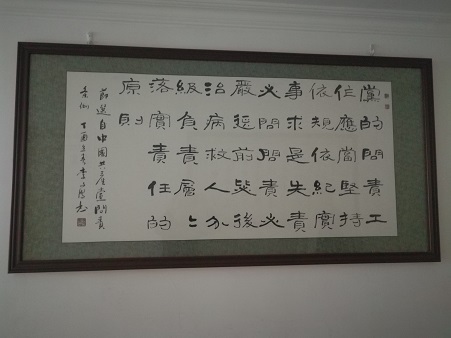 黨的問責工
作應當堅持
依規依紀實
事求是失責
必問問責必
嚴懲前毖後
治病救人分
級負責層〻
落實責任的
原則
節選自中國共產黨問責
条例 丁酉 李